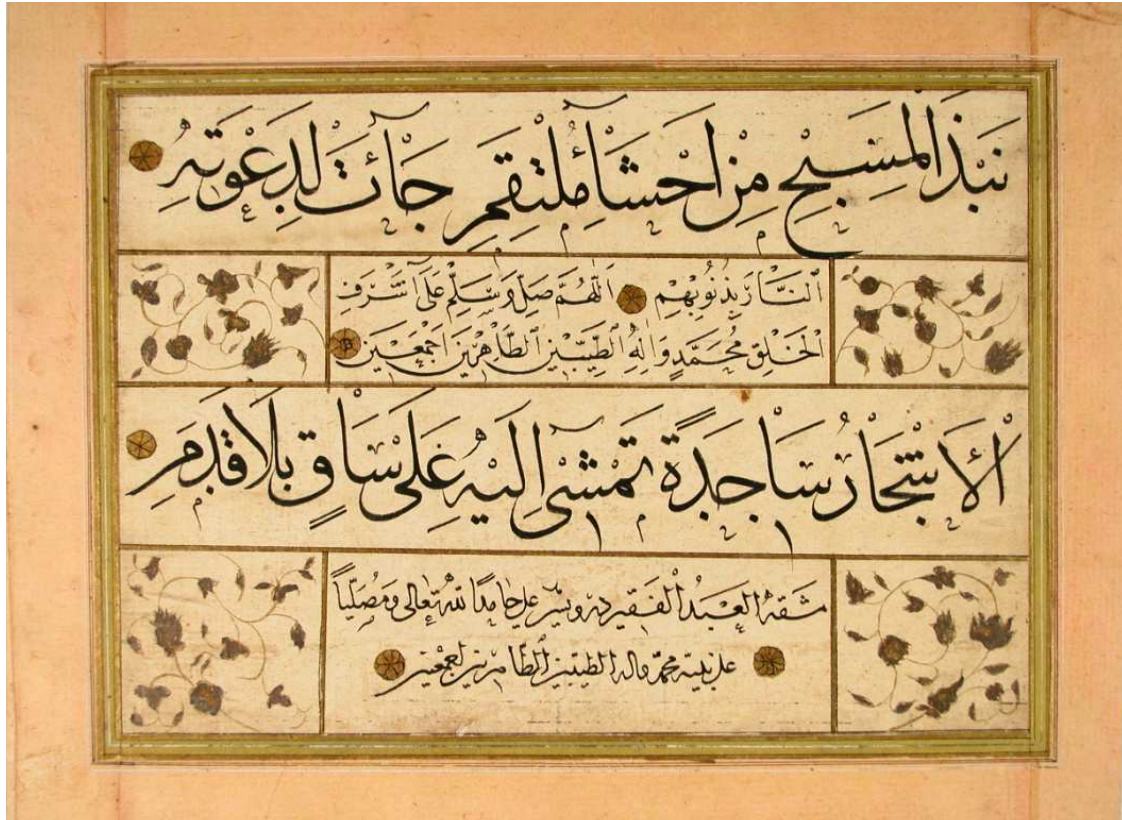 نَبْذَ الْمُسَبِّحِ مِنْ اَحْشَاءِ مُلْتَقِمِ جَاءَتْ لِدَعْوَتِهِ
اَلنَّارَ بِذُنُوبِهِمْ اَللّٰهُمَّ صَلِّ وَسَلِّمْ عَلَى اَشْرَفِ
الْخَلْقِ مُحَمَّدٍ وَاٰلِهِ الطَّيِّبِينَ الطَّاهِرِينَ اَجْمَعِينَ
الْاَشْجَارُ سَاجِدَةً تَمْشِى اِلَيْهِ عَلَى سَاقٍ بِلَا قَدَمِ
مشقه العبد الفقير درويش على حامدا لله تعالى ومصليا
على نبيه محمد واله الطيبين الطاهرين اجمعين